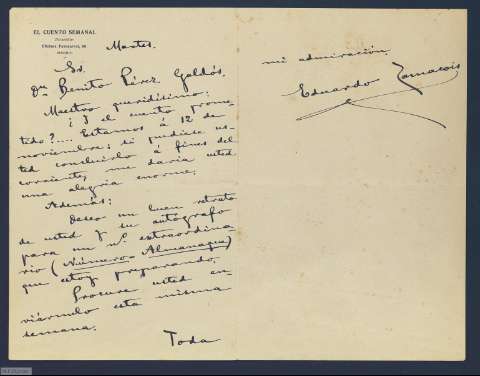 EL CUENTO SEMANAL
Martes.
Sr.
Dn Benito Pérez Galdós.
Maestro queridísimo:
¿Y el cuento prome
tido?.... Estamos á 12 de
noviembre; si pudiese us-
ted concluirlo á fines del
corriente, me daría usted
una alegria enorme.
Además:
Deseo un buen retrato
de usted y su autógrafo
para un nº extraordina
rio (Número-Almanaque)
que estoy preparando.
Procure usted en
viármelo esta misma
semana.
Toda
mi admiración
Eduardo Zamacois